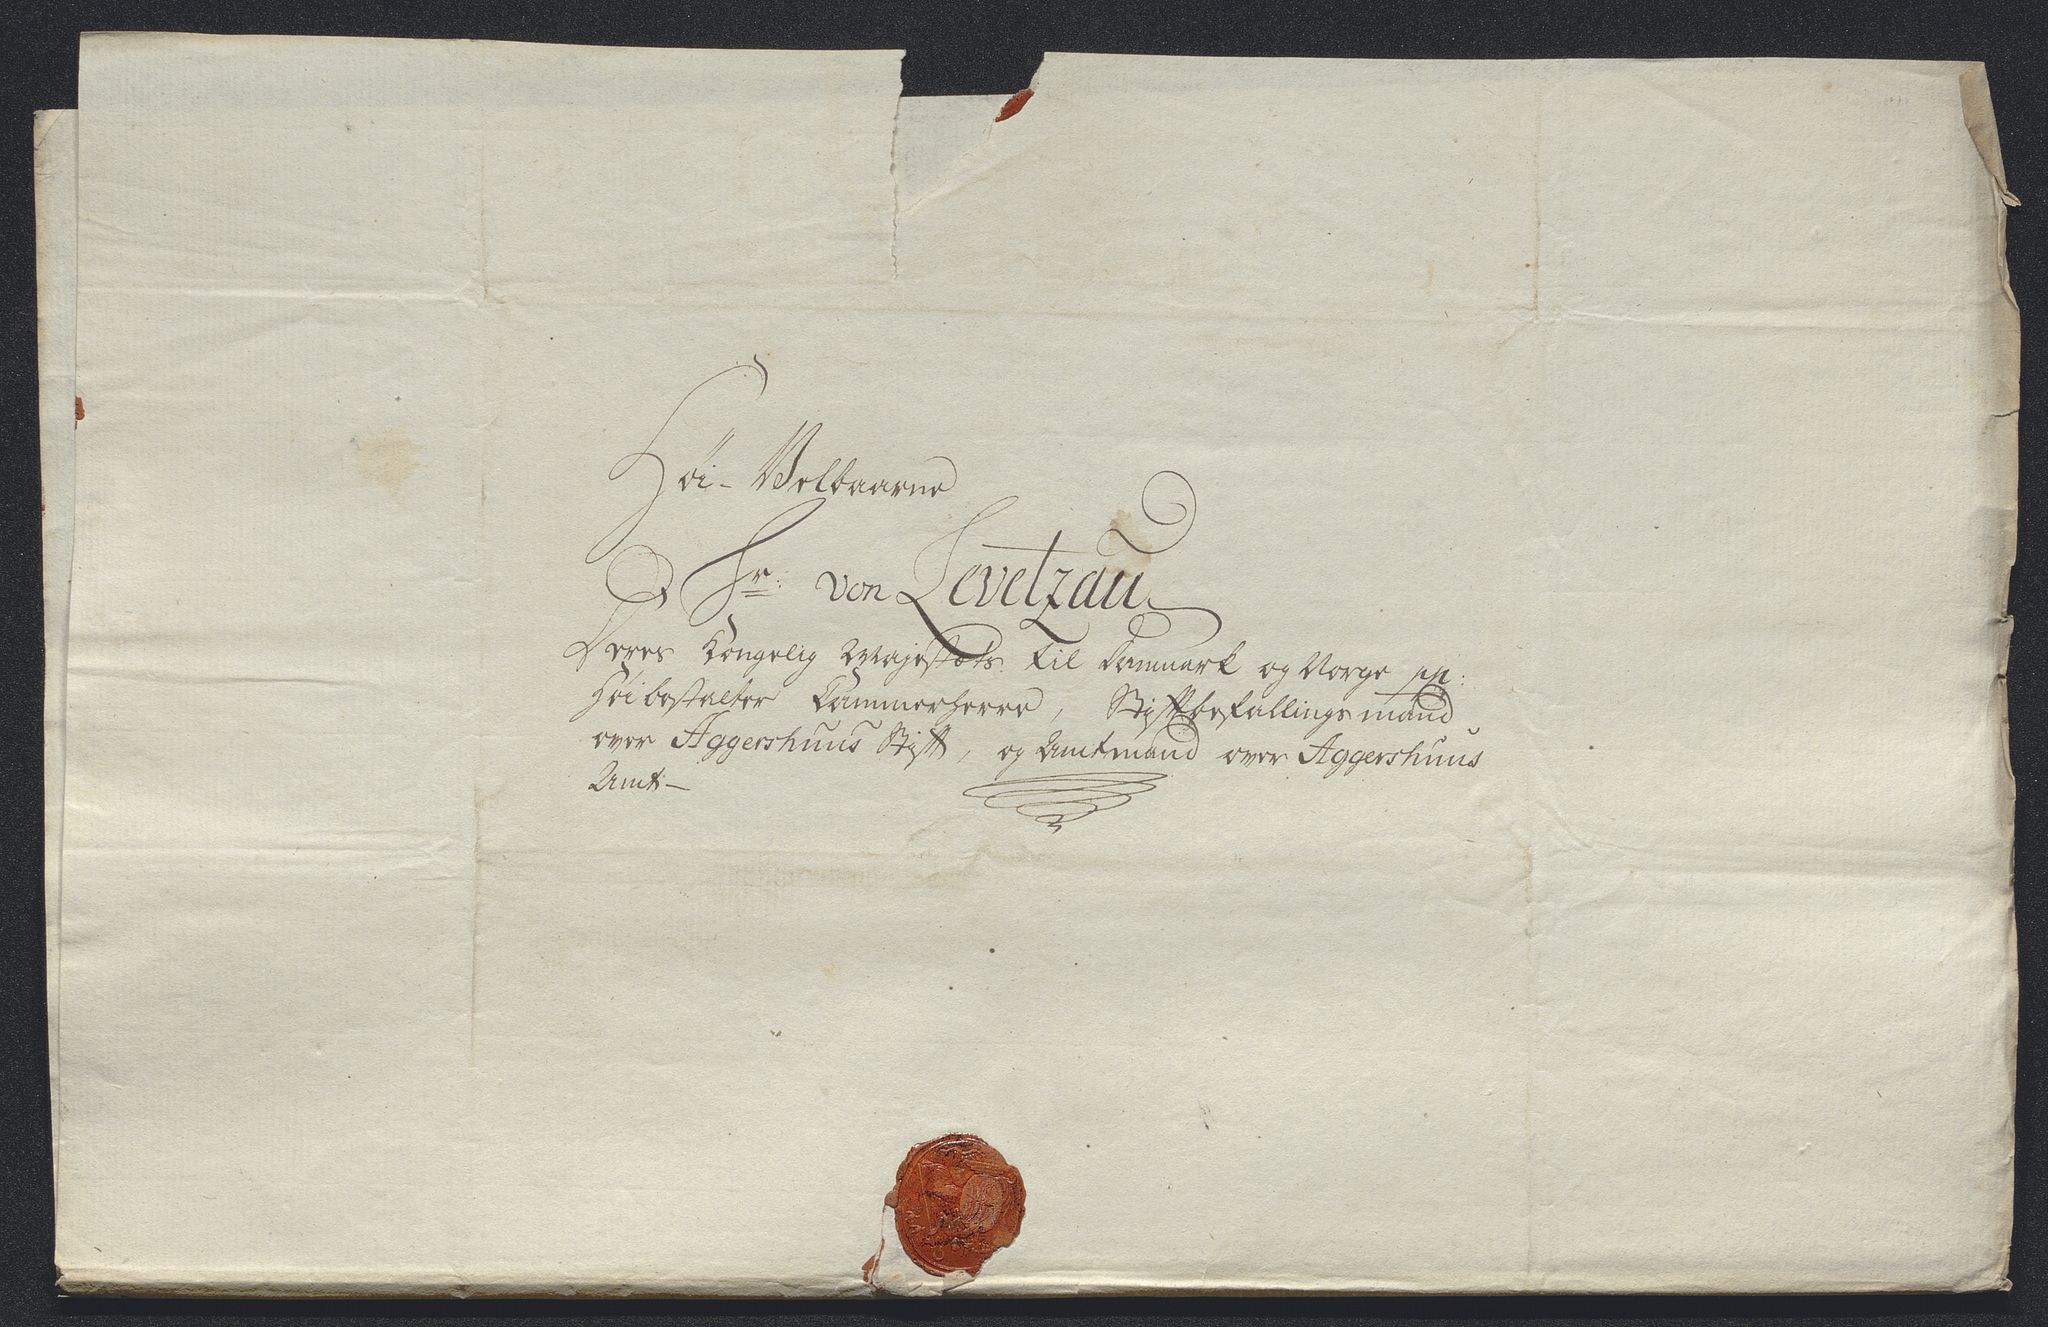 Høi-Velbaarne
Hr: von Levetzau
Deres Kongelig Majestæts til Danmark og Norge pp:
Høibestalter Kammerherre, Stiftbefallingsmand
over Aggershuus Stift, og Amtmand over Aggershuus
Amt:—